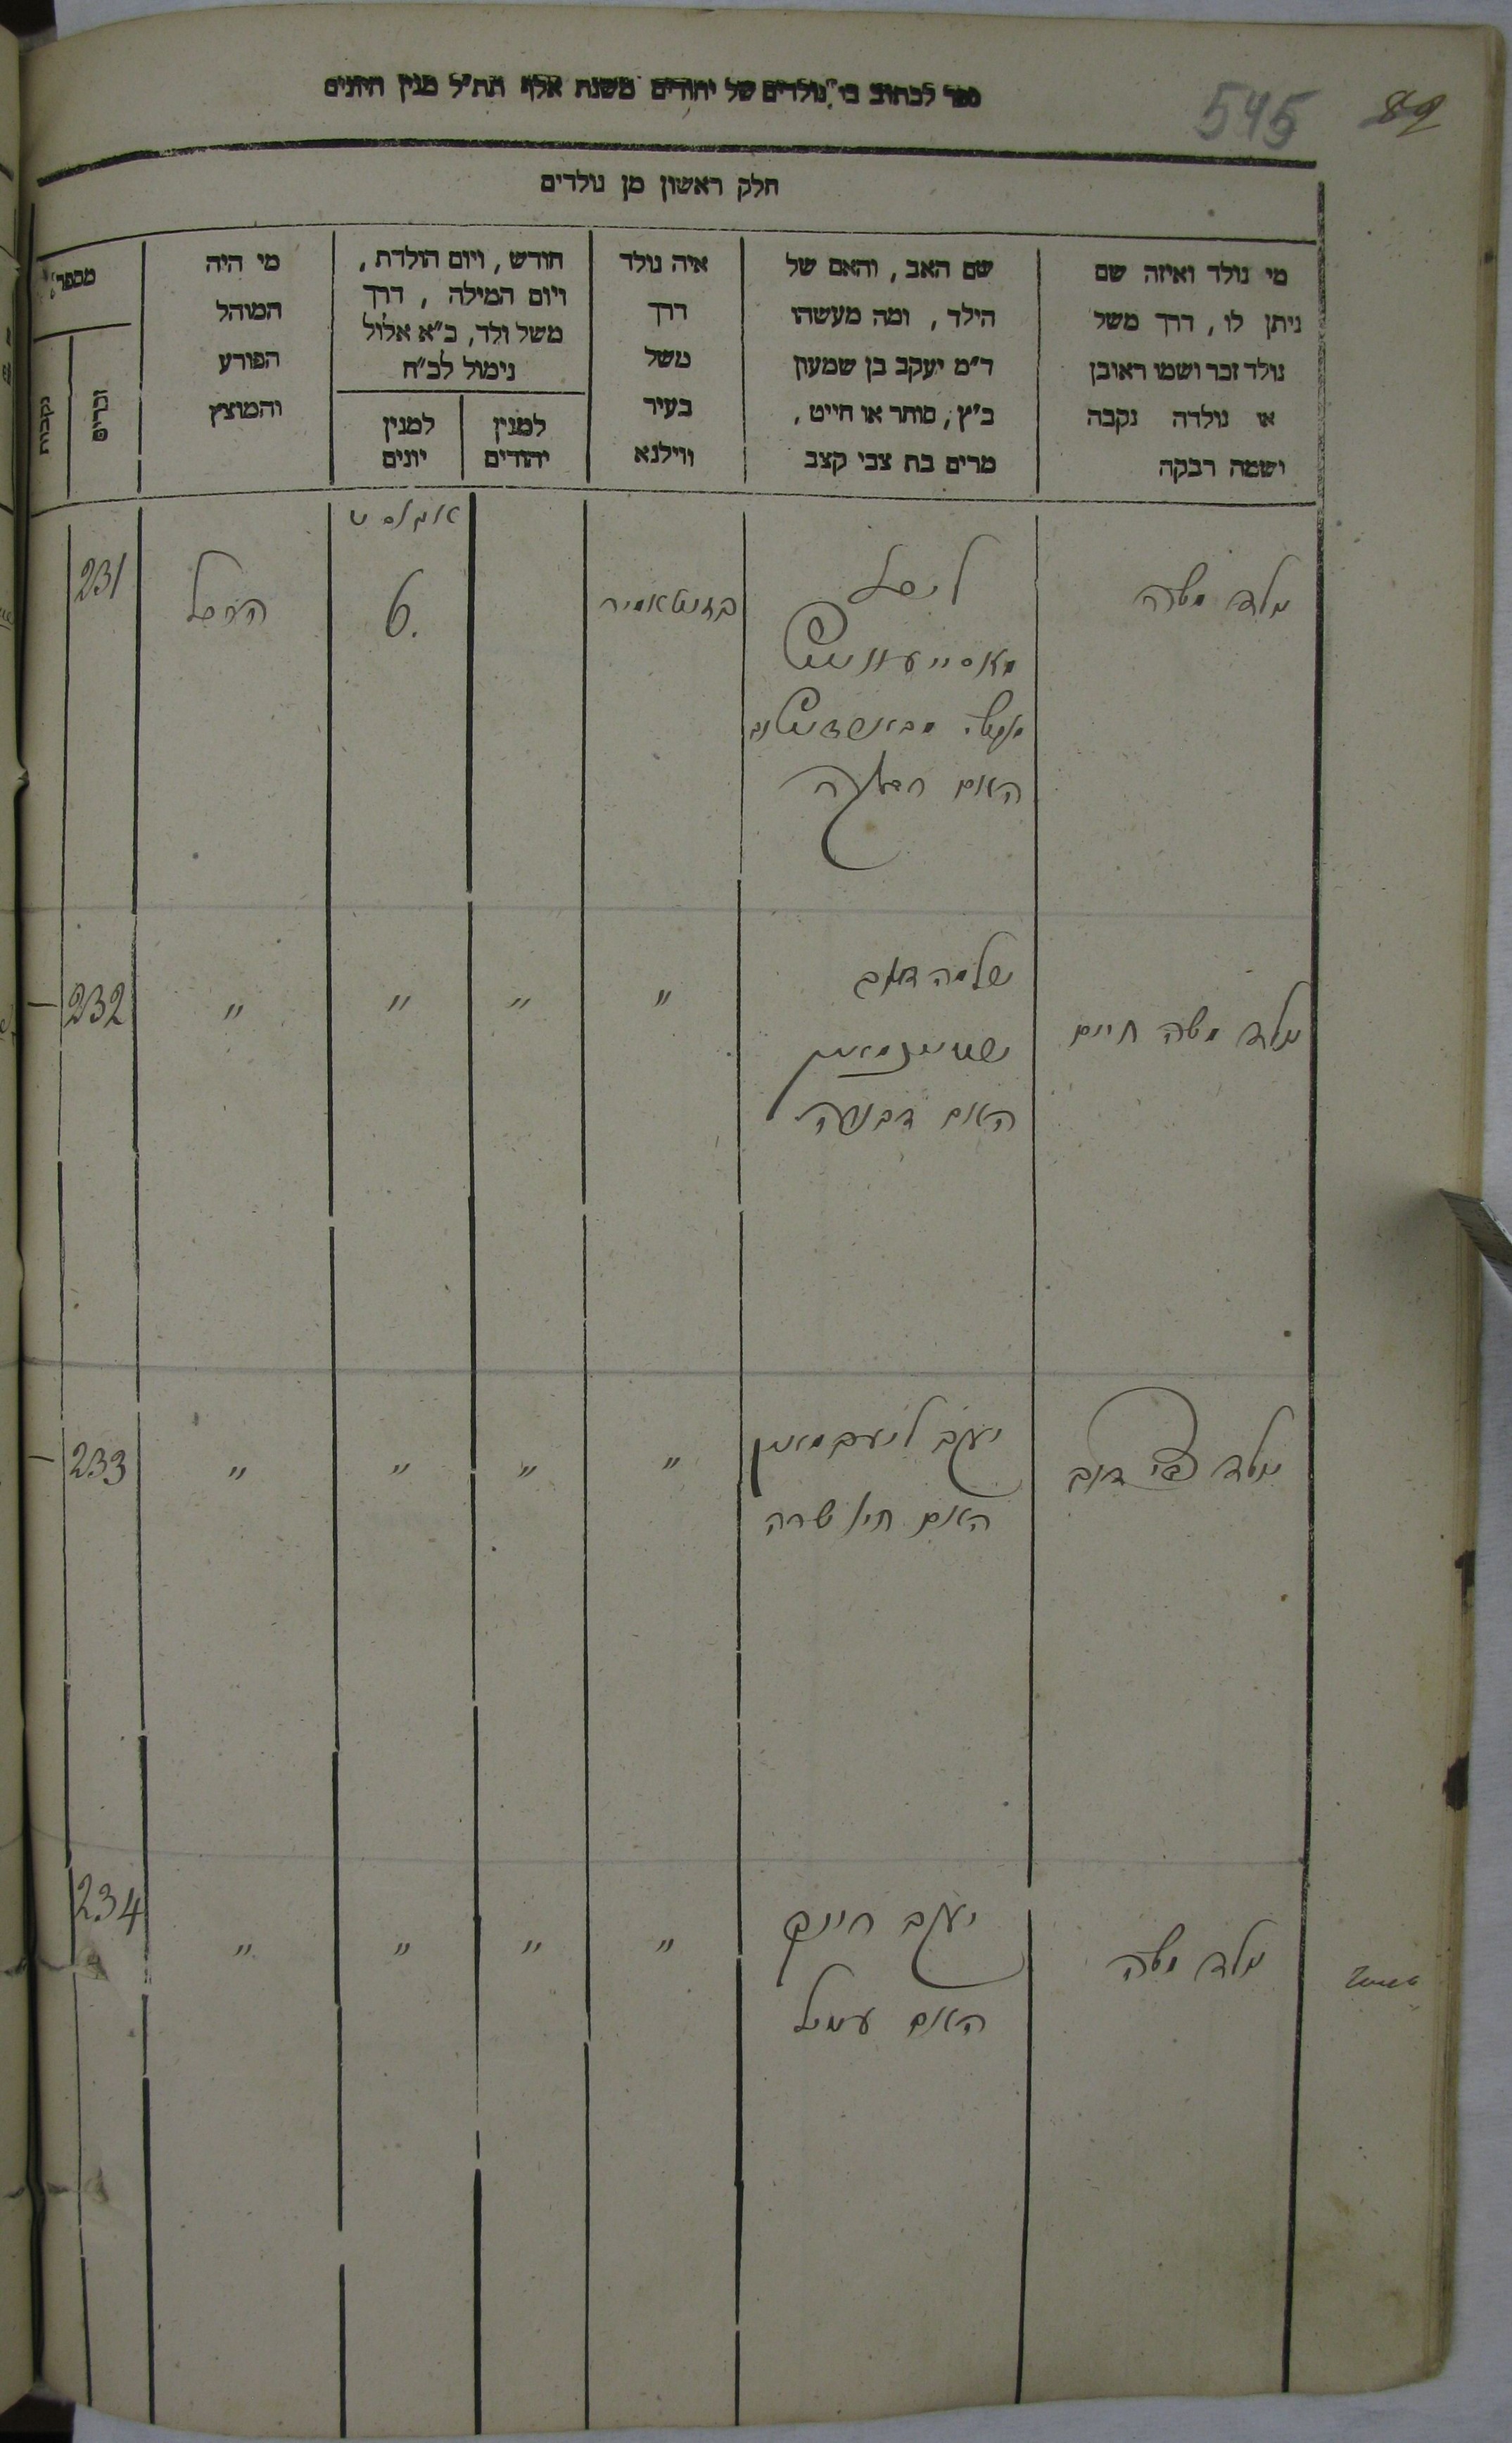 ספר לכתוב בו נולדים של יהודים משנת אלף תת״ל מנין היונים
545 89
חלק ראשון מן נולדים
מי נולד ואיזה שם
ניתן לו, דרך משל
נולד זכר ושמו ראובן
או נולדה נקבה
ושמה רבקה
שם האב, והאם של
הילד, ומה מעשהו
ד״מ יעקב בן שמעון
כ״ץ, סוחר או חייט,
מרים בת צבי קצב
איה נולד
דרך
משל
בעיר
ווילנא
חודש, ויום הולדת,
ויום המילה, דרך
משל ולד, כ״א אלול
נימול לכ״ח
למנין
יהודים
למנין
יונים
מי היה
המוהל
הפורע
והמוצץ
מספר
זכרים
נקבות
אוגוסט
נולד משה
האום
בזיטאמיר
6.
231
נולד משה חיים
שלמה
האום
" " " "
232
נולד צבי דוב
יעקב ליעבמאן
האום חי' שרה
" " " "
233
נולד משה
יעקב
האום
" " " "
234